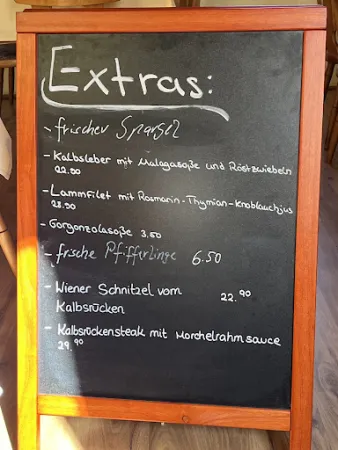 Extras:
- frischer Spargel
- Kalbsleber mit Malagasoße und Röstzwiebeln
22.90
- Lammfilet mit Rosmarin-Thymian-Knoblauchjus
28.90
- Gorgonzolasoße 3,50
- frische Pfifferlinge 6.50
- Wiener Schnitzel vom 22.90
Kalbsrücken
- Kalbsrückensteak mit Morchelrahmsauce
29.90